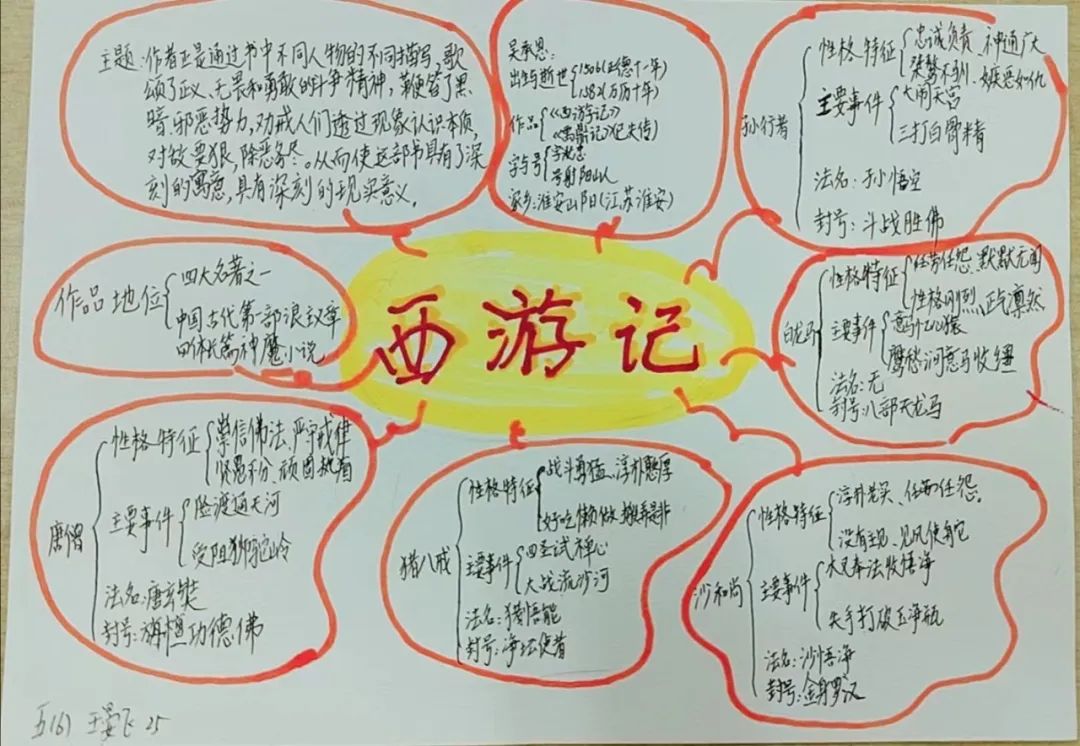 主题:作者正是通过书中不同人物的不同描写,歌
颂了正义、无畏和勇敢的斗争精神,鞭笞了黑
暗、邪恶势力,劝戒人们透过现象认识本质,
对敌要狠,除恶务尽。从而使这部书具有了深
刻的寓意,具有深刻的现实意义。
吴承恩:
出生与逝世
1506(正德十一年)
1582(万历十年)
作品
《西游记》
《禹鼎记》
字与号
号射阳山人
家乡:淮安山阳(江苏淮安)
孙行者
性格特征
忠诚负责、神通广大
桀骜不驯、嫉恶如仇
主要事件
大闹天宫
三打白骨精
法名:孙悟空
封号:斗战胜佛
作品地位
四大名著之一
中国古代第一部浪漫章
回体长篇神魔小说
西游记
白龙马
性格特征
任劳任怨、默默无闻
性格刚烈、正气凛然
主要事件
意马忆心猿
鹰愁涧意马收缰
法名:无
封号:八部天龙马
唐僧
性格特征
崇信佛法、严守戒律
贤愚不分、顽固执着
主要事件
险渡通天河
受阻狮驼岭
法名:唐玄奘
封号:旃檀功德佛
猪八戒
性格特征
战斗勇猛、淳朴憨厚
好吃懒做、搬弄是非
主要事件
四圣试禅心
大战流沙河
法名:猪悟能
封号:净坛使者
沙和尚
性格特征
淳朴老实、任劳任怨。
没有主见、见风使舵
主要事件
木叉奉法收悟净
失手打破玉净瓶
法名:沙悟净
封号:金身罗汉
五(6) 王晏飞 25